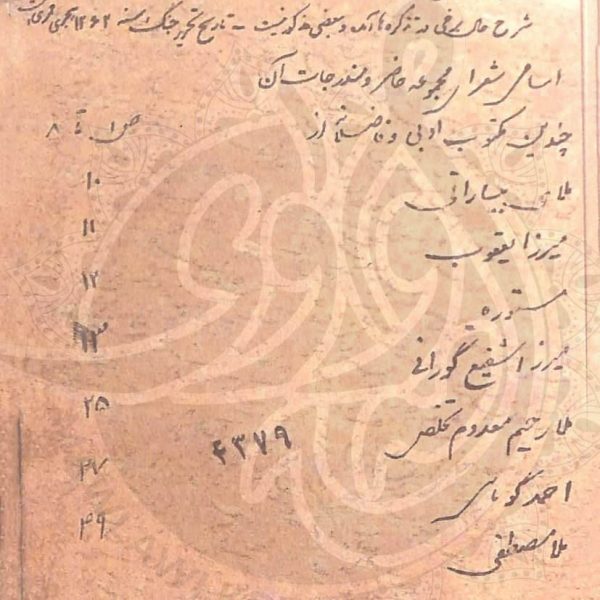 شرح حال برخی در تذکره ها آمده و بعضی مذکور نیست - تاریخ تحریر جنگ سنه ۱۲۶۲ هجری
اسامی شعرای مجموعه حاضر و مندرجات آن
چندین مکتوب ادبی و فاضلانه از ص ۱ تا ۸
ملای بیسارانی ۱۰
میرزا یعقوب ۱۱
مستوره ۱۲
میرزا شفیع گورانی ۱۳
ملا رحیم معدوم تخلص ۲۵
۴۳۷۹
احمد ۲۷
ملا مصطفی ۴۹